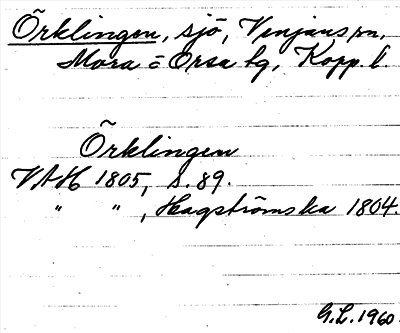 Örklingen, sjö, Venjans sn,
Mora o Orsa tg, Kopp. l.
Örklingen
VAH 1805, s. 89.
" ", Hagströmska 1804.
G.L. 1960